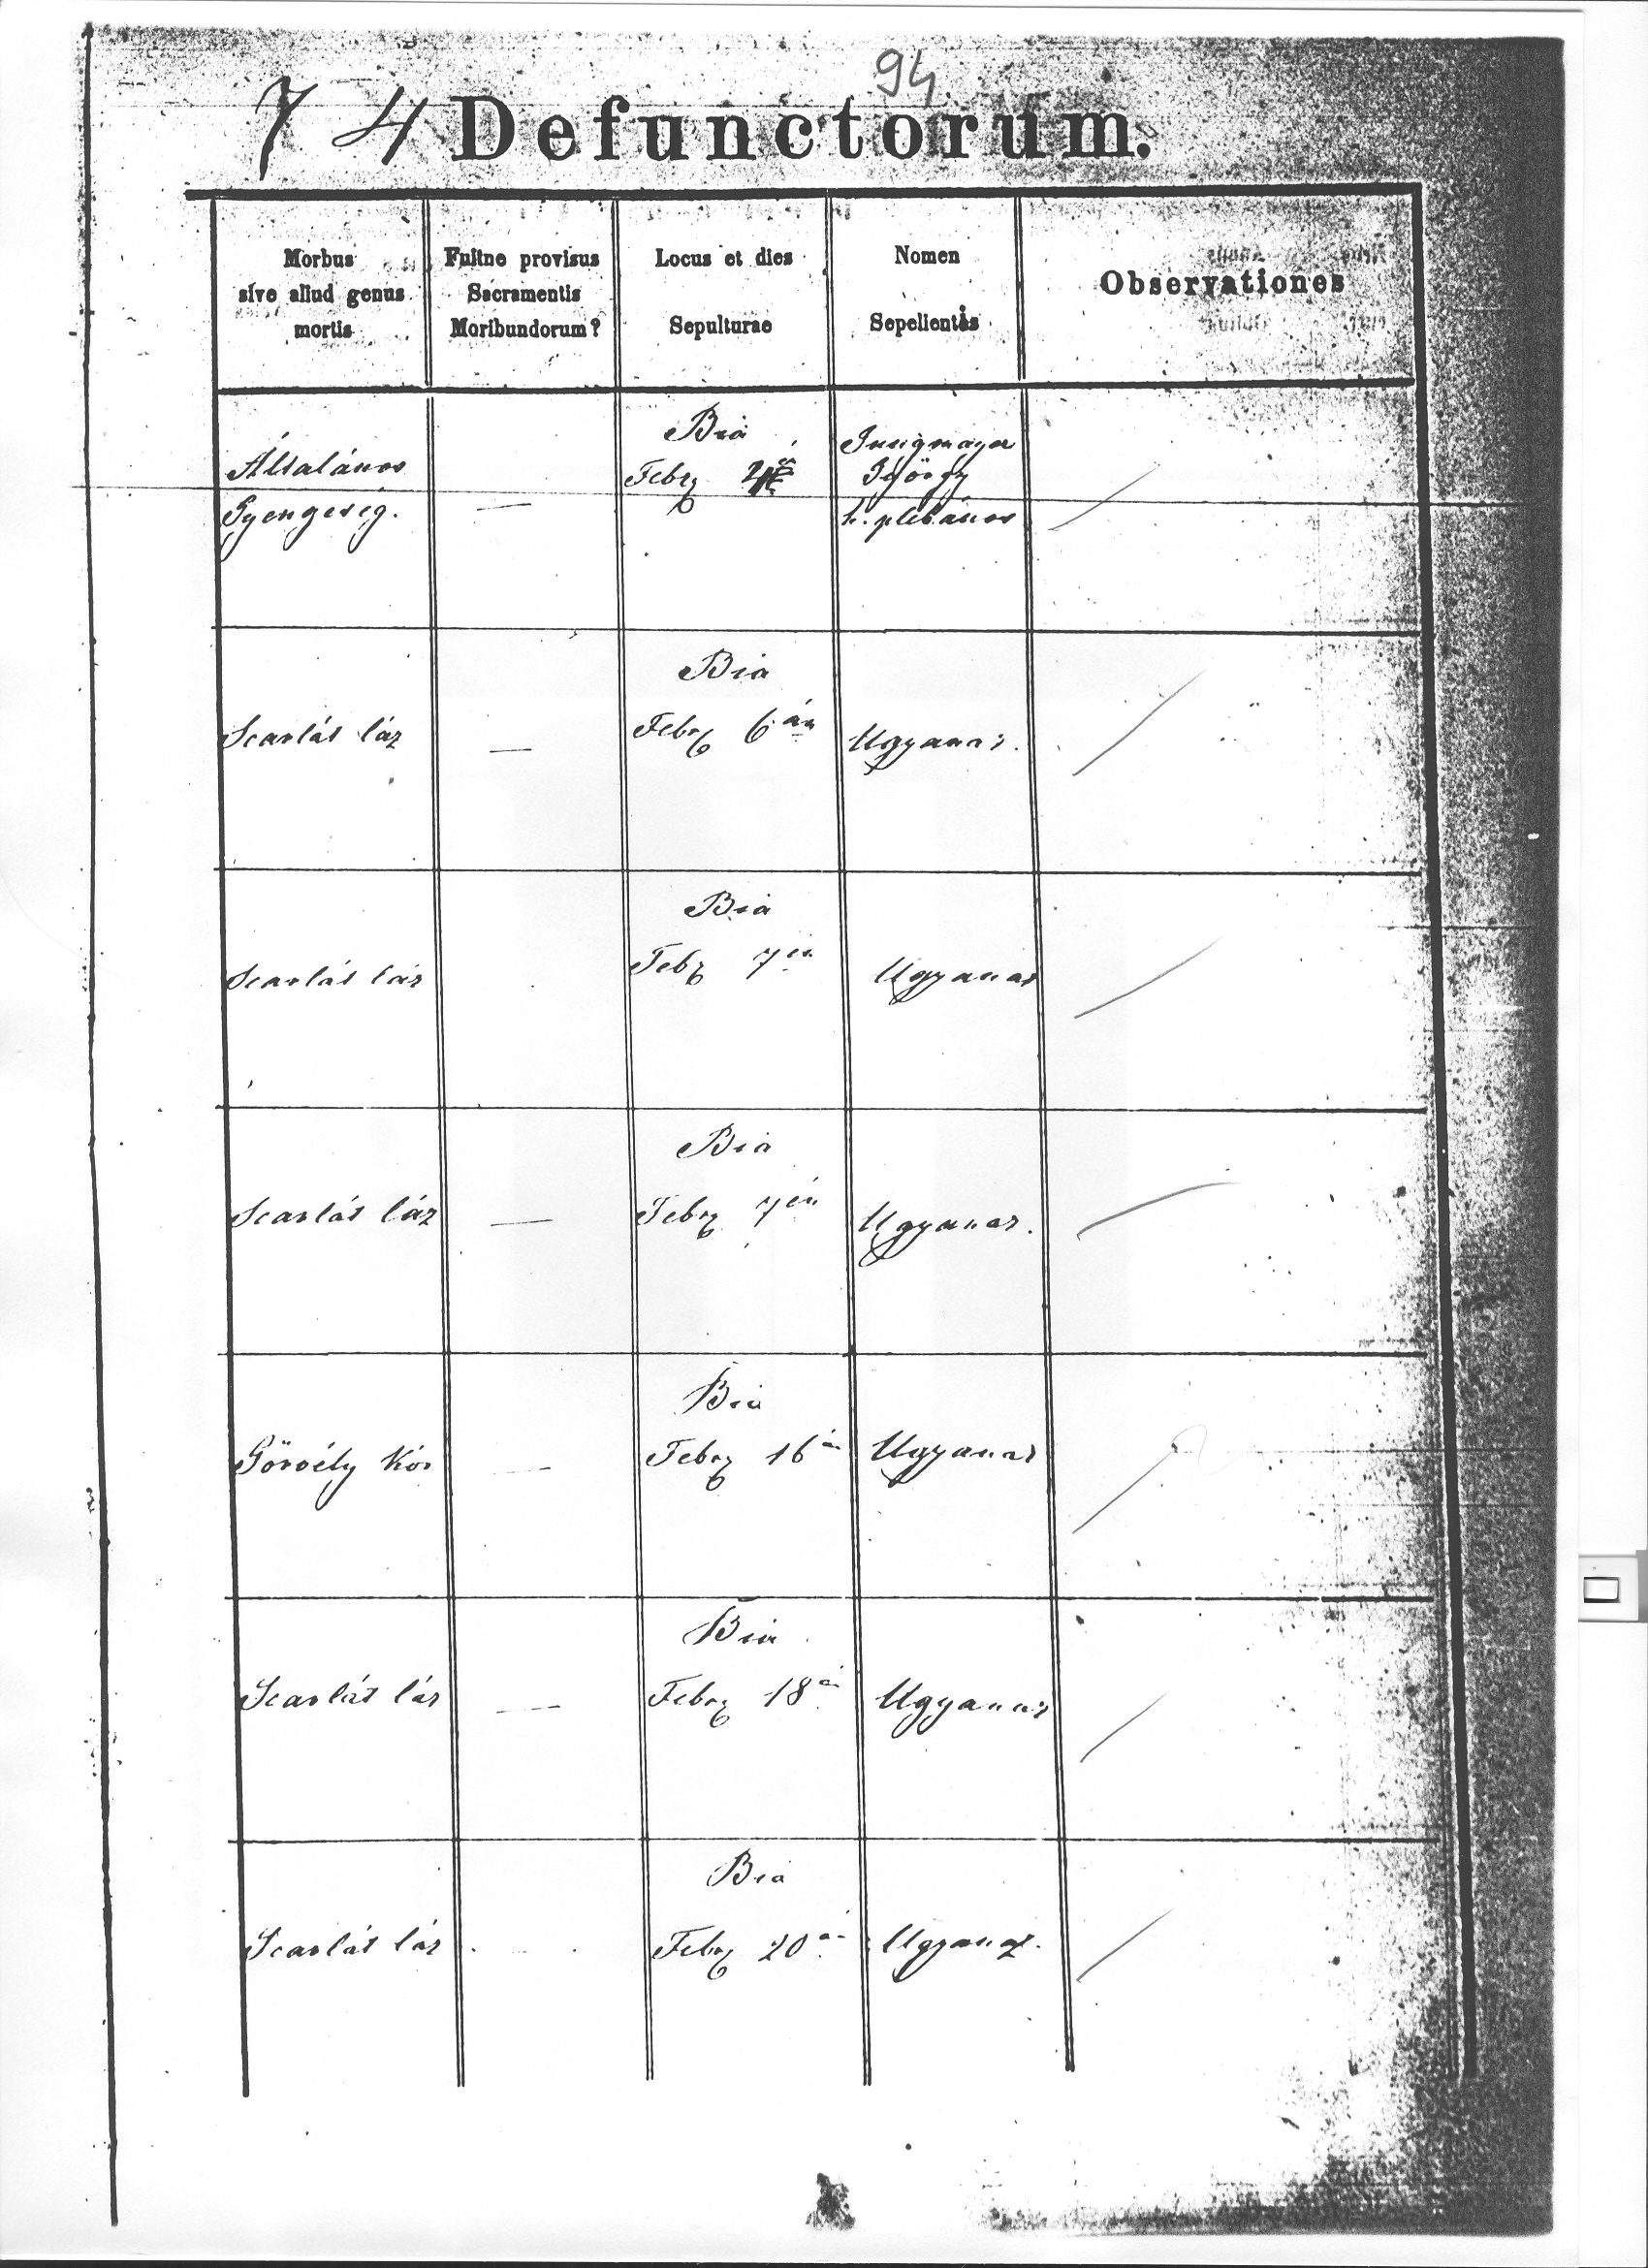 94
74 Defunctorum.
Morbus
sive aliud genus
mortis
Fuitne provisus
Sacramentis
Moribundorum?
Locus et dies
Sepulturae
Nomen
Sepelientis
Observationes
Általános
Gyengeség.
—
Bia
Febr
Jungmayer
György
h. plebános
Scarlát láz
—
Bia
Febr 6 án
Ugyanaz.
Scarlát láz
Bia
Febr 7 én
Ugyanaz
Scarlát láz
—
Bia
Febr 7 én
Ugyanaz.
Görvély kór
—
Bia
Febr 16 án
Ugyanaz
Scarlát láz
—
Bia
Febr 18 án
Ugyanaz
Scarlát láz
Bia
Febr 20 án
Ugyanaz.